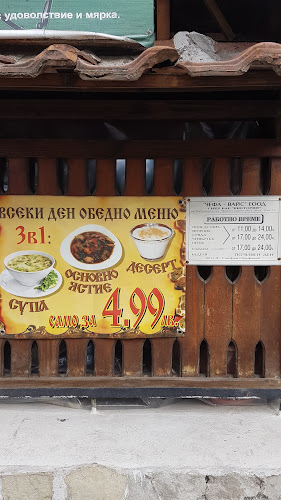 с удоволствие и мярка.
ВСЕКИ ДЕН ОБЕДНО МЕНЮ
3в1:
СУПА
ОСНОВНО
ЯСТИЕ
ДЕСЕРТ
САМО ЗА 4.99лв.
РАБОТНО ВРЕМЕ
от 11,00 до 14,00ч
от 17,00 до 24,00ч
от 17,00 до 24,00ч